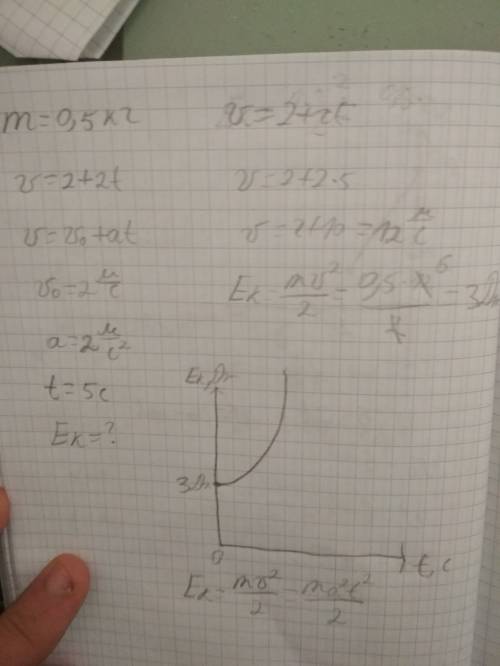 m=0,5кг
v=2+2t
v=v₀+at
v₀=2 м/с
a=2 м/с²
t=5с
Eк=?
v=2+2t
v=2+2·5
v=2+10=12 м/с
Eк=mv²/2=0,5·12/2=3Дж
Eк,Дж
3Дж
0
t,с
Eк=mv²/2=ma²t²/2